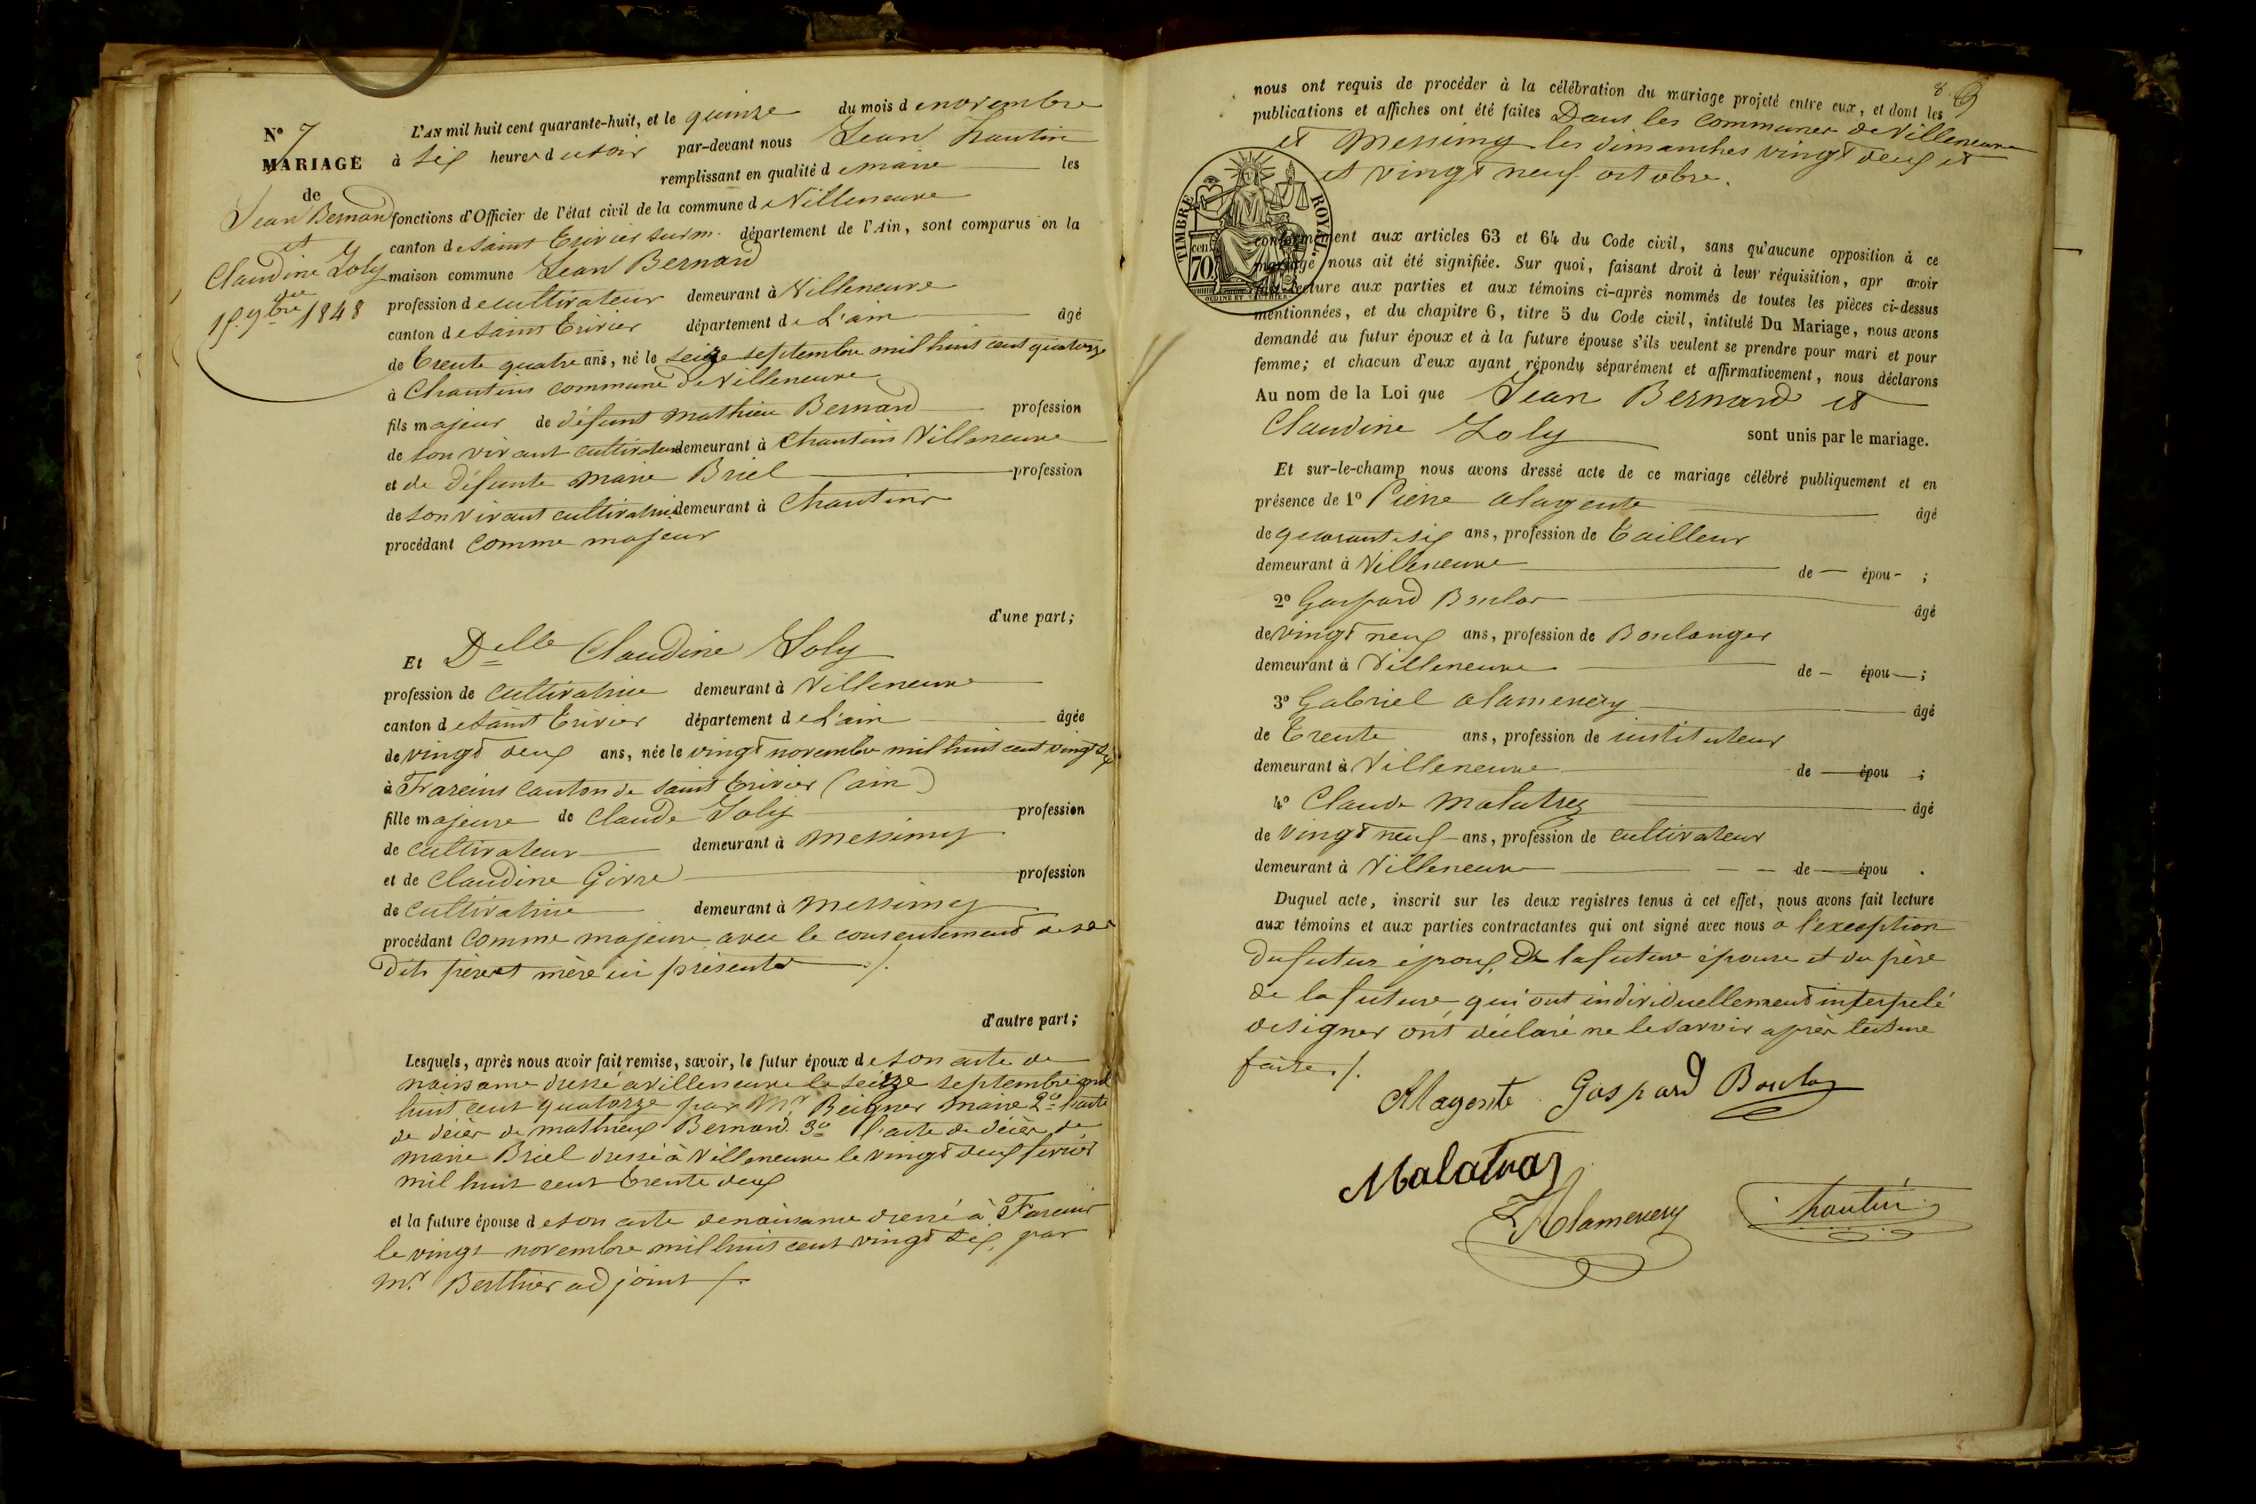 N° 7
MARIAGE
de
Jean Bernard
et
Claudine Joly
due
15 9bre 1848
L'AN mil huit cent quarante-huit, et le quinze du mois de novembre
à six heures du soir par-devant nous Jean hautin
remplissant en qualité de maire les
fonctions d'Officier de l'état civil de la commune de Villeneuve
canton de saint Trivier sur m. département de l'Ain, sont comparus en la
maison commune Jean Bernard
profession de cultivateur demeurant à Villeneuve
canton de saint Trivier département de L'ain âgé
de trente quatre ans, né le seize septembre mil huit cent quatorze
à Chantins commune de Villeneuve
fils majeur de défunt mathieu Bernard profession
de son vivant cultivateur demeurant à Chantins Villeneuve
et de défunte marie Briel profession
de son vivant cultivatrice demeurant à Chantins
procédant comme majeur
d'une part;
Et Delle Claudine Joly
profession de cultivatrice demeurant à Villeneuve
canton de saint Trivier département de L'ain âgée
de vingt deux ans, née le vingt novembre mil huit cent vingt six
à Frareins canton de saint Trivier (ain)
fille majeure de Claude Joly profession
de cultivateur demeurant à Messimy
et de Claudine Givre profession
de cultivatrice demeurant à Messimy
procédant comme majeure avec le consentement de ses
dits père et mère ici présents ./.
d'autre part;
Lesquels, après nous avoir fait remise, savoir, le futur époux de son acte de
naissance dressé a villeneuve le seize septembre mil
huit cent quatorze par Mr. Beigner maire 2° l'acte
de décès de mathieux Bernard. 3° l'acte de décès de
marie Briel dressé à Villeneuve le vingt deux fevrier
mil huit cent trente deux
et la future épouse de son acte de naissance dressé à Fareins
le vingt novembre mil huit cent vingt six, par
mr. Berthier adjoint ./.
8. 9
nous ont requis de procéder à la célébration du mariage projeté entre eux, et dont les
publications et affiches ont été faites Dans les communes de Villeneuve
et Messimy les dimanches vingt deux et
et vingt neuf octobre.
TIMBRE ROYAL.
cen.
70
conformément aux articles 63 et 64 du Code civil, sans qu'aucune opposition à ce
mariage nous ait été signifiée. Sur quoi, faisant droit à leur réquisition, apr avoir
fait lecture aux parties et aux témoins ci-après nommés de toutes les pièces ci-dessus
mentionnées, et du chapitre 6, titre 5 du Code civil, intitulé Du Mariage, nous avons
demandé au futur époux et à la future épouse s'ils veulent se prendre pour mari et pour
femme; et chacun d'eux ayant répondu séparément et affirmativement, nous déclarons
Au nom de la Loi que Jean Bernard et
Claudine Joly sont unis par le mariage.
Et sur-le-champ nous avons dressé acte de ce mariage célébré publiquement et en
présence de 1° Pierre alagente âgé
de quarante six ans, profession de tailleur
demeurant à Villeneuve de — épou- ;
2° Gaspard Boulas âgé
de vingt neuf ans, profession de Boulanger
demeurant à Villeneuve de — épou— ;
3° Gabriel alamenery âgé
de trente ans, profession de instituteur
demeurant à Villeneuve de — épou ;
4° Claude Malatrez âgé
de vingt neuf ans, profession de cultivateur
demeurant à Villeneuve de — épou .
Duquel acte, inscrit sur les deux registres tenus à cet effet, nous avons fait lecture
aux témoins et aux parties contractantes qui ont signé avec nous à l'exception
du futur époux, de la future épouse et du père
de la future, qui ont individuellement interpelé
de signer ont déclaré ne le savoir après lecture
faite ./.
Alagente Gaspard Boulaz
Malatraz
Alamenery hautin